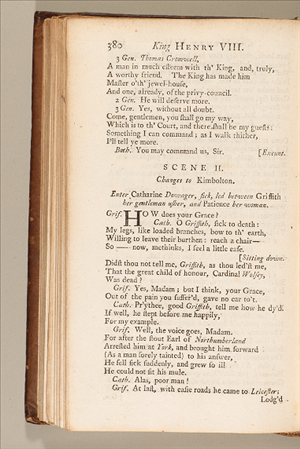 380 King HENRY VIII.
3 Gen. Thomas Cromwell,
A man in much esteem with th' King, and, truly,
A worthy friend. The King has made him
Master o'th' jewel-house,
And one, already, of the privy-council.
2 Gen. He will deserve more.
3 Gen. Yes, without all doubt.
Come, gentlemen, you shall go my way,
Which is to th' Court, and there shall be my guests:
Something I can command; as I walk thither,
I'll tell ye more.
Both. You may command us, Sir. [Exeunt.
SCENE II.
Changes to Kimbolton.
Enter Catharine Dowager, sick, led between Griffith
her gentleman usher, and Patience her woman.
Grif. HOW does your Grace?
Cath. O Griffith, sick to death:
My legs, like loaded branches, bow to th' earth,
Willing to leave their burthen: reach a chair—
So —— now, methinks, I feel a little ease.
[Sitting down.
Didst thou not tell me, Griffith, as thou led'st me,
That the great child of honour, Cardinal Wolsey,
Was dead?
Grif. Yes, Madam; but I think, your Grace,
Out of the pain you suffer'd, gave no ear to't.
Cath. Pr'ythee, good Griffith, tell me how he dy'd.
If well, he stept before me happily,
For my example.
Grif. Well, the voice goes, Madam.
For after the stout Earl of Northumberland
Arrested him at York, and brought him forward
(As a man sorely tainted) to his answer,
He fell sick suddenly, and grew so ill
He could not sit his mule.
Cath. Alas, poor man!
Grif. At last, with easie roads he came to Leicester;
Lodg'd